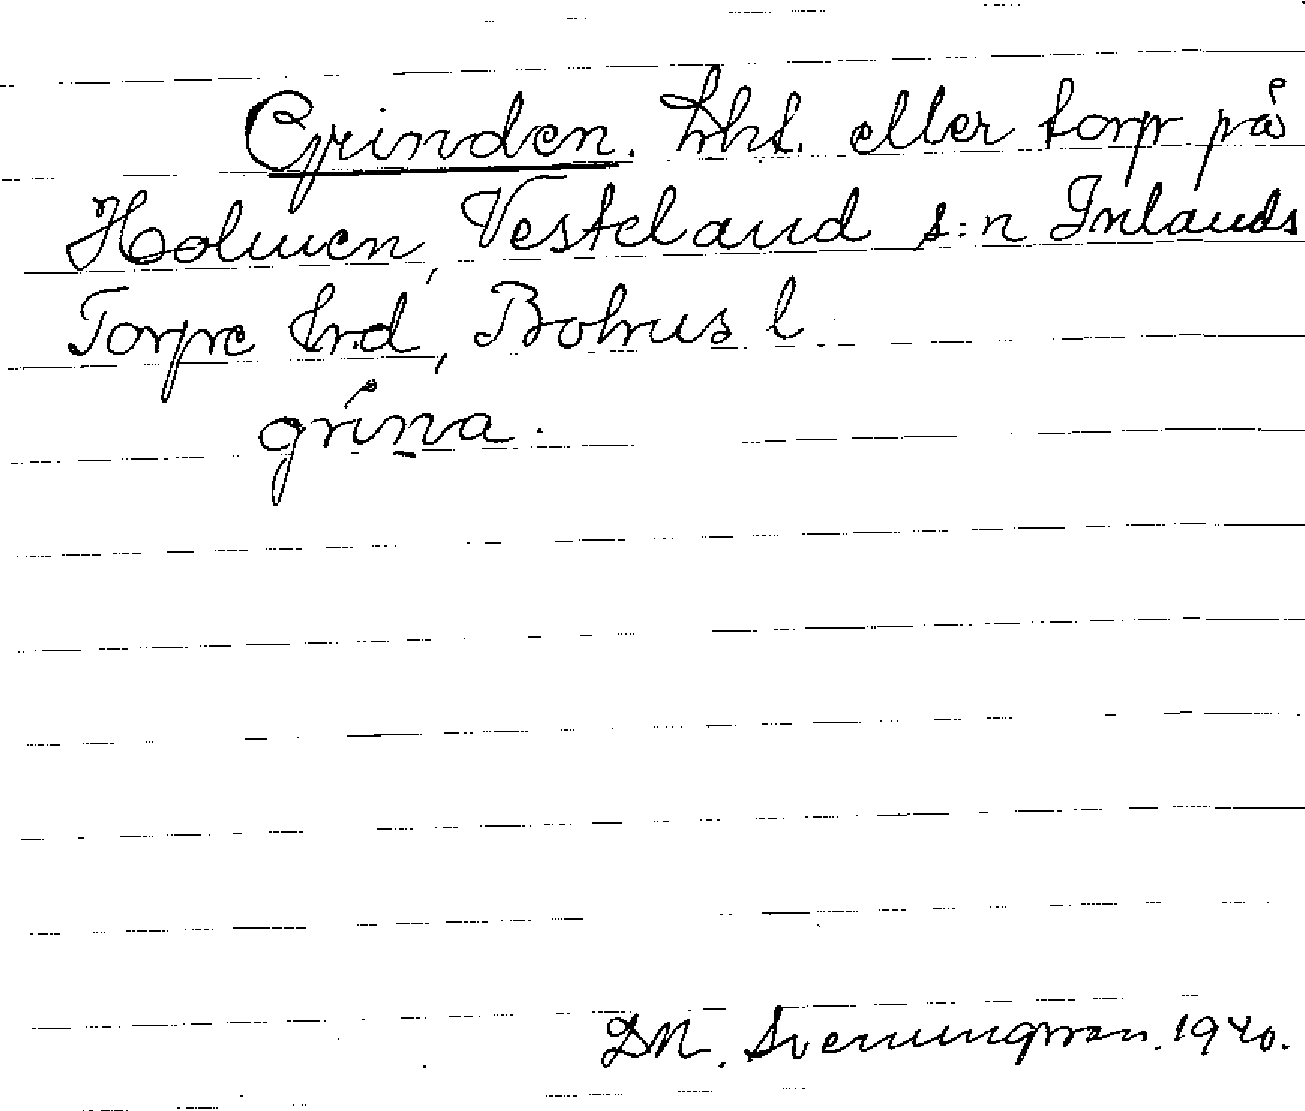 Grinden. Lht. eller torp på
Holmen, Vesteland s:n Inlands
Torpe hrd, Bohus l.
grína.
D.M. Svenungsson. 1940.